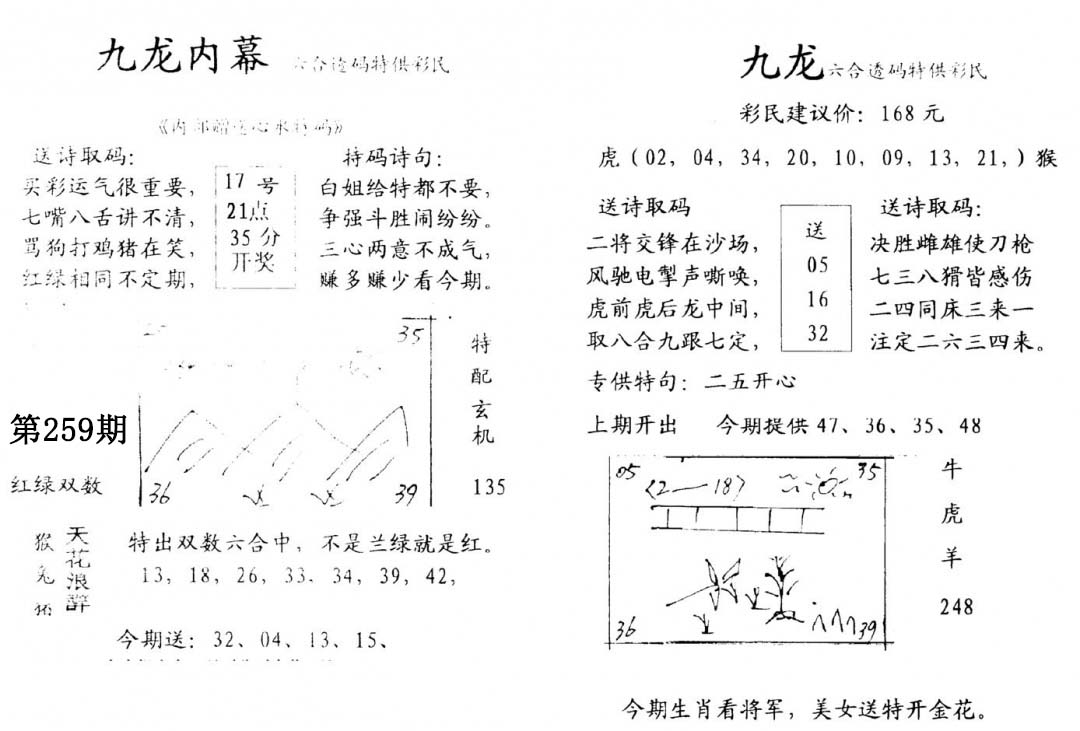 九龙内幕 六合透码特供彩民
《内部赠送心水特码》
送诗取码：
买彩运气很重要，
七嘴八舌讲不清，
骂狗打鸡猪在笑，
红绿相同不定期，
17号
21点
35分
开奖
特码诗句：
白姐给特都不要，
争强斗胜闹纷纷。
三心两意不成气，
赚多赚少看今期。
35
36
39
特配玄机
135
第259期
红绿双数
猴兔
天花浪
特出双数六合中，不是兰绿就是红。
13，18，26，33．34，39，42，
今期送：32、04、13、15、
九龙六合透码特供彩民
彩民建议价：168元
虎（02，04，34，20，10，09，13，21，）猴
送诗取码
二将交锋在沙场，
风驰电掣声嘶唤，
虎前虎后龙中间，
取八合九跟七定，
送
05
16
32
送诗取码：
决胜雌雄使刀枪
七三八猾皆感伤
二四同床三来一
注定二六三四来。
专供特句：二五开心
上期开出 今期提供47、36、35、48
05
35
36
39
牛
虎
羊
248
今期生肖看将军，美女送特开金花。